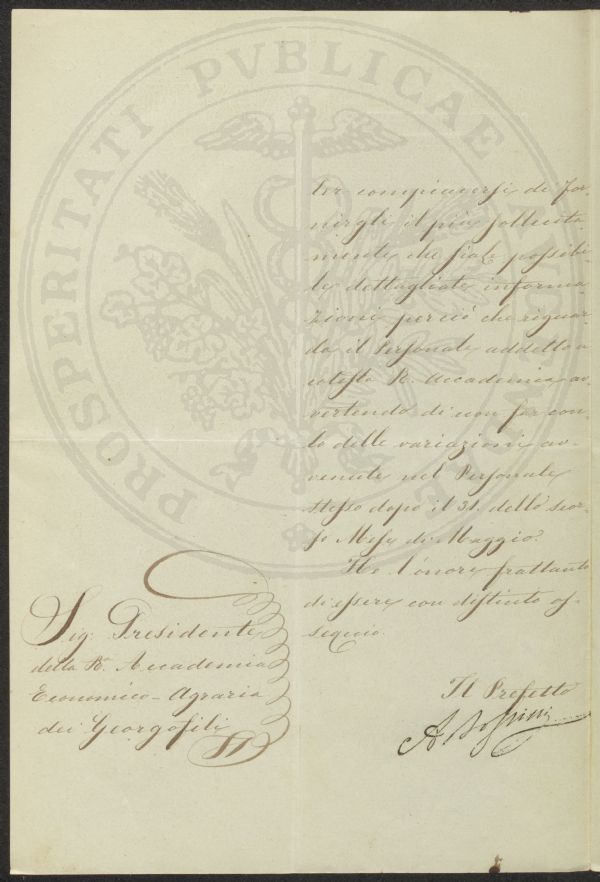 PROSPERITATI PVBLICAE
ler compiacersi di for-
nirgli il più sollecita-
mente che siale possibi-
le dettagliate informa-
zioni perciò che riguar-
da il Personale addetto a
cotesta R. Accademia av-
vertendo di non far con-
to delle variazioni av-
venute nel Personale
stesso dopo il 31. dello scor-
so Mese di Maggio.
Ho l'onore frattanto
di essere con distinto os-
sequio.
Il Prefetto
Sig. Presidente
della R. Accademia
Economico-Agraria
dei Georgofili